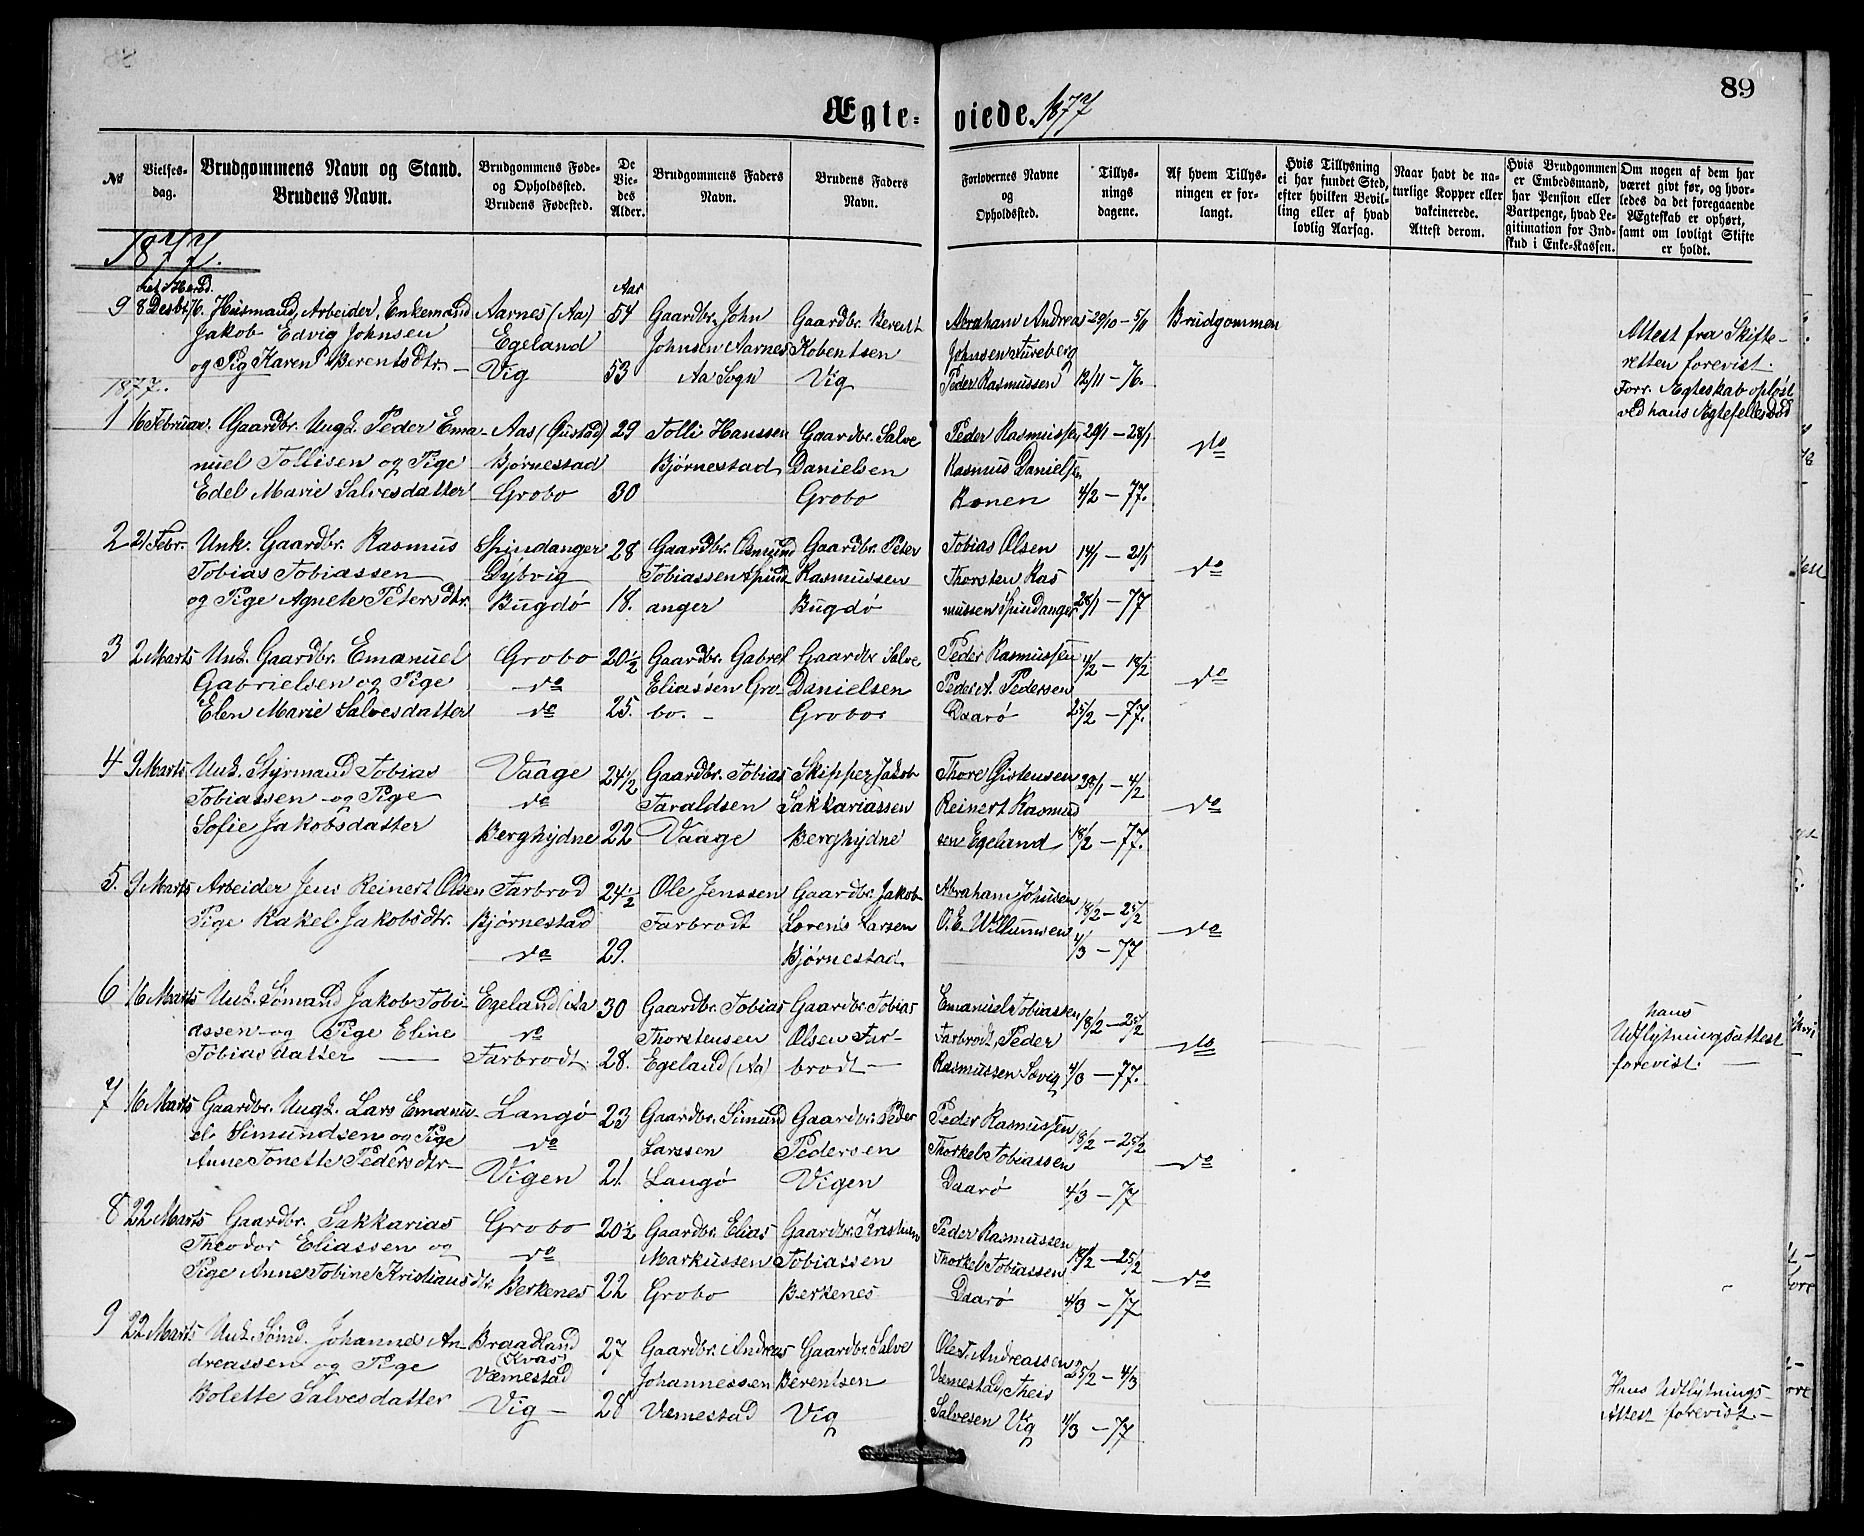 89
Ægteviede. 1877
№
Vielsesdag.
Brudgommens Navn og Stand.
Brudens Navn.
Brudgommens Føde- og Opholdssted.
Brudens Fødested.
De Viedes Alder.
Brudgommens Faders Navn.
Brudens Faders Navn.
Forlovernes Navne og Opholdssted.
Tillysningsdagene.
Af hvem Tillysningen er forlangt.
Hvis Tillysning ei har fundet Sted, efter hvilken Bevilling eller af hvad lovlig Aarsag.
Naar havt de naturlige Kopper eller vakcinerede. Attest derom.
Hvis Brudgommen er Embedsmand, har Pension eller Vartpenge, hvad Legitimation for Indskud i Enke-Kassen.
Om nogen af dem har været gift før, og hvorledes da det foregaaende Ægteskab er ophørt, samt om lovligt Skifte er holdt.
1877.
9 8 Desbr 76. Husmand, Arbeider, Enkemand Aarnes (Aa) Aar 54 Gaardbr. John Gaardbr. Berent Abraham Andreas 29/10 – 5/11 Brudgommen
Jakob Edvig Johnsen Egeland Johnsen Aarnes Kobentsen Johnsen Tureberg Attest fra Skifte-
og Pig Karen Berentsdtr. — Vig 53 Aa Sogn Vig Peder Rasmussen 12/11 – 76. retten forevist.
1877. Forr. Ægteskab opløst
ved hans Ægtefelles Død
1 16 Februar. Gaardbr. Ungk. Peder Ema- Aas (Qustad) 29 Tolli Hanssen Gaardbr. Salve Peder Rasmussen 20/1 – 28/1 do
nuel Tollisen og Pige Bjørnestad Bjørnestad Danielsen Rasmus Danielsen
Edel Marie Salvesdatter Grobo 30 Grobo Ronen 4/2 – 77.
2 21 Febr. Unk. Gaardbr. Rasmus Spindanger 28 Gaardbr. Osmund Gaardbr. Peter Tobias Olsen 14/1 – 21/1
Tobias Tobiassen Dybvig Tobiassen Spind Rasmussen Thorsten Ras do
og Pige Agnete Petersdtr. Bugdø 18. anger Bugdø mussen Spindanger 28/1 – 77
3 2 Marts Unk. Gaardbr. Emanuel Grobo 20½ Gaardbr. Gabriel Gaardbr Salve Peder Rasmussen 4/2 – 18/2
Gabrielsen og Pige do Eliassen Gro Danielsen Peder A. Pedersen do
Elen Marie Salvesdatter do 25. bo. – Grobo Daarø 25/2 – 77.
4 9 Marts Unk. Styrmand Tobias Vaage 24½ Gaardbr. Tobias Skipper Jakob Thore Gistensen 28/1 – 4/2
Tobiassen og Pige do Taraldsen Sakkariassen Reinert Rasmus do
Sofie Jakobsdatter Berghydne 22 Vaage Berghydne sen Egeland 18/2 – 77.
5. 9 Marts Arbeider Jens Reinert Olsen Farbrod 24½ Ole Jenssen Gaardbr. Jakob Abraham Johnsen 18/2 – 25/2
Pige Rakel Jakobsdtr. Bjørnestad Farbrodt Lorens Larsen O. E. Willumsen do
do 29. Bjørnestad 4/3 – 77
6 16 Marts Unk. Sømand Jakob Tobi- Egeland (Aa 30 Gaardbr. Tobias Gaardbr. Tobias Emanuel Tobiassen 18/2 – 25/2 hans
assen og Pige Eline do Thorstensen Olsen Far- Farbrodt, Peder do Udflytningsattest
Tobiasdatter — Farbrodt. 28. Egeland (Aa) brodt — Rasmussen Sævig 4/3 – 77. forevist. —
7 16 Marts Gaardbr. Ungk. Lars Emanu- Langø 23 Gaardbr. Simund Gaardbr. Peder Peder Rasmussen 18/2 – 25/2
el Simundsen og Pige do Larssen Pedersen Thorkel Tobiassen do
Anne Tonette Pedersdtr — Vigen 21. Langø Vigen Daarø 4/3 – 77
8 22 Marts Gaardbr. Sakkarias Grobo 20½ Gaardbr. Elias Gaardbr. Kristian Peder Rasmussen 18/2 – 25/2
Theodor Eliassen og do Markussen Tobiassen Thorkel Tobiassen do
Pige Anne Tobine Kristiansdtr Berkenes 22 Grobo Berkenes Daarø 4/3 – 77
9 22 Marts Unk. Sømd. Johannes An- Braadland (Kvas) 27 Gaardbr. Andreas Gaardbr. Salve Ole T. Andreassen 25/2 – 4/3
dreassen og Pige Væmestad Johannessen Berentsen Væmestad, Theis Hans Udflytnings-
Bolette Salvesdatter Vig — 28 Væmestad Vig Salvesen Vig 11/3 – 77 Attest forevist. —